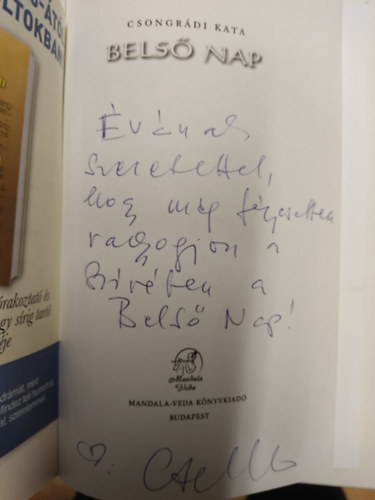 Ó-ÁTÓ
LTOKBAN
CSONGRÁDI KATA
BELSŐ NAP
Évának
Szeretettel,
hogy még fényesebben
ragyogjon a
Szívében a
Belső Nap!
órakoztató és
gy sírig tartó
éje
Mandala
Veda
MANDALA-VEDA KÖNYVKIADÓ
BUDAPEST